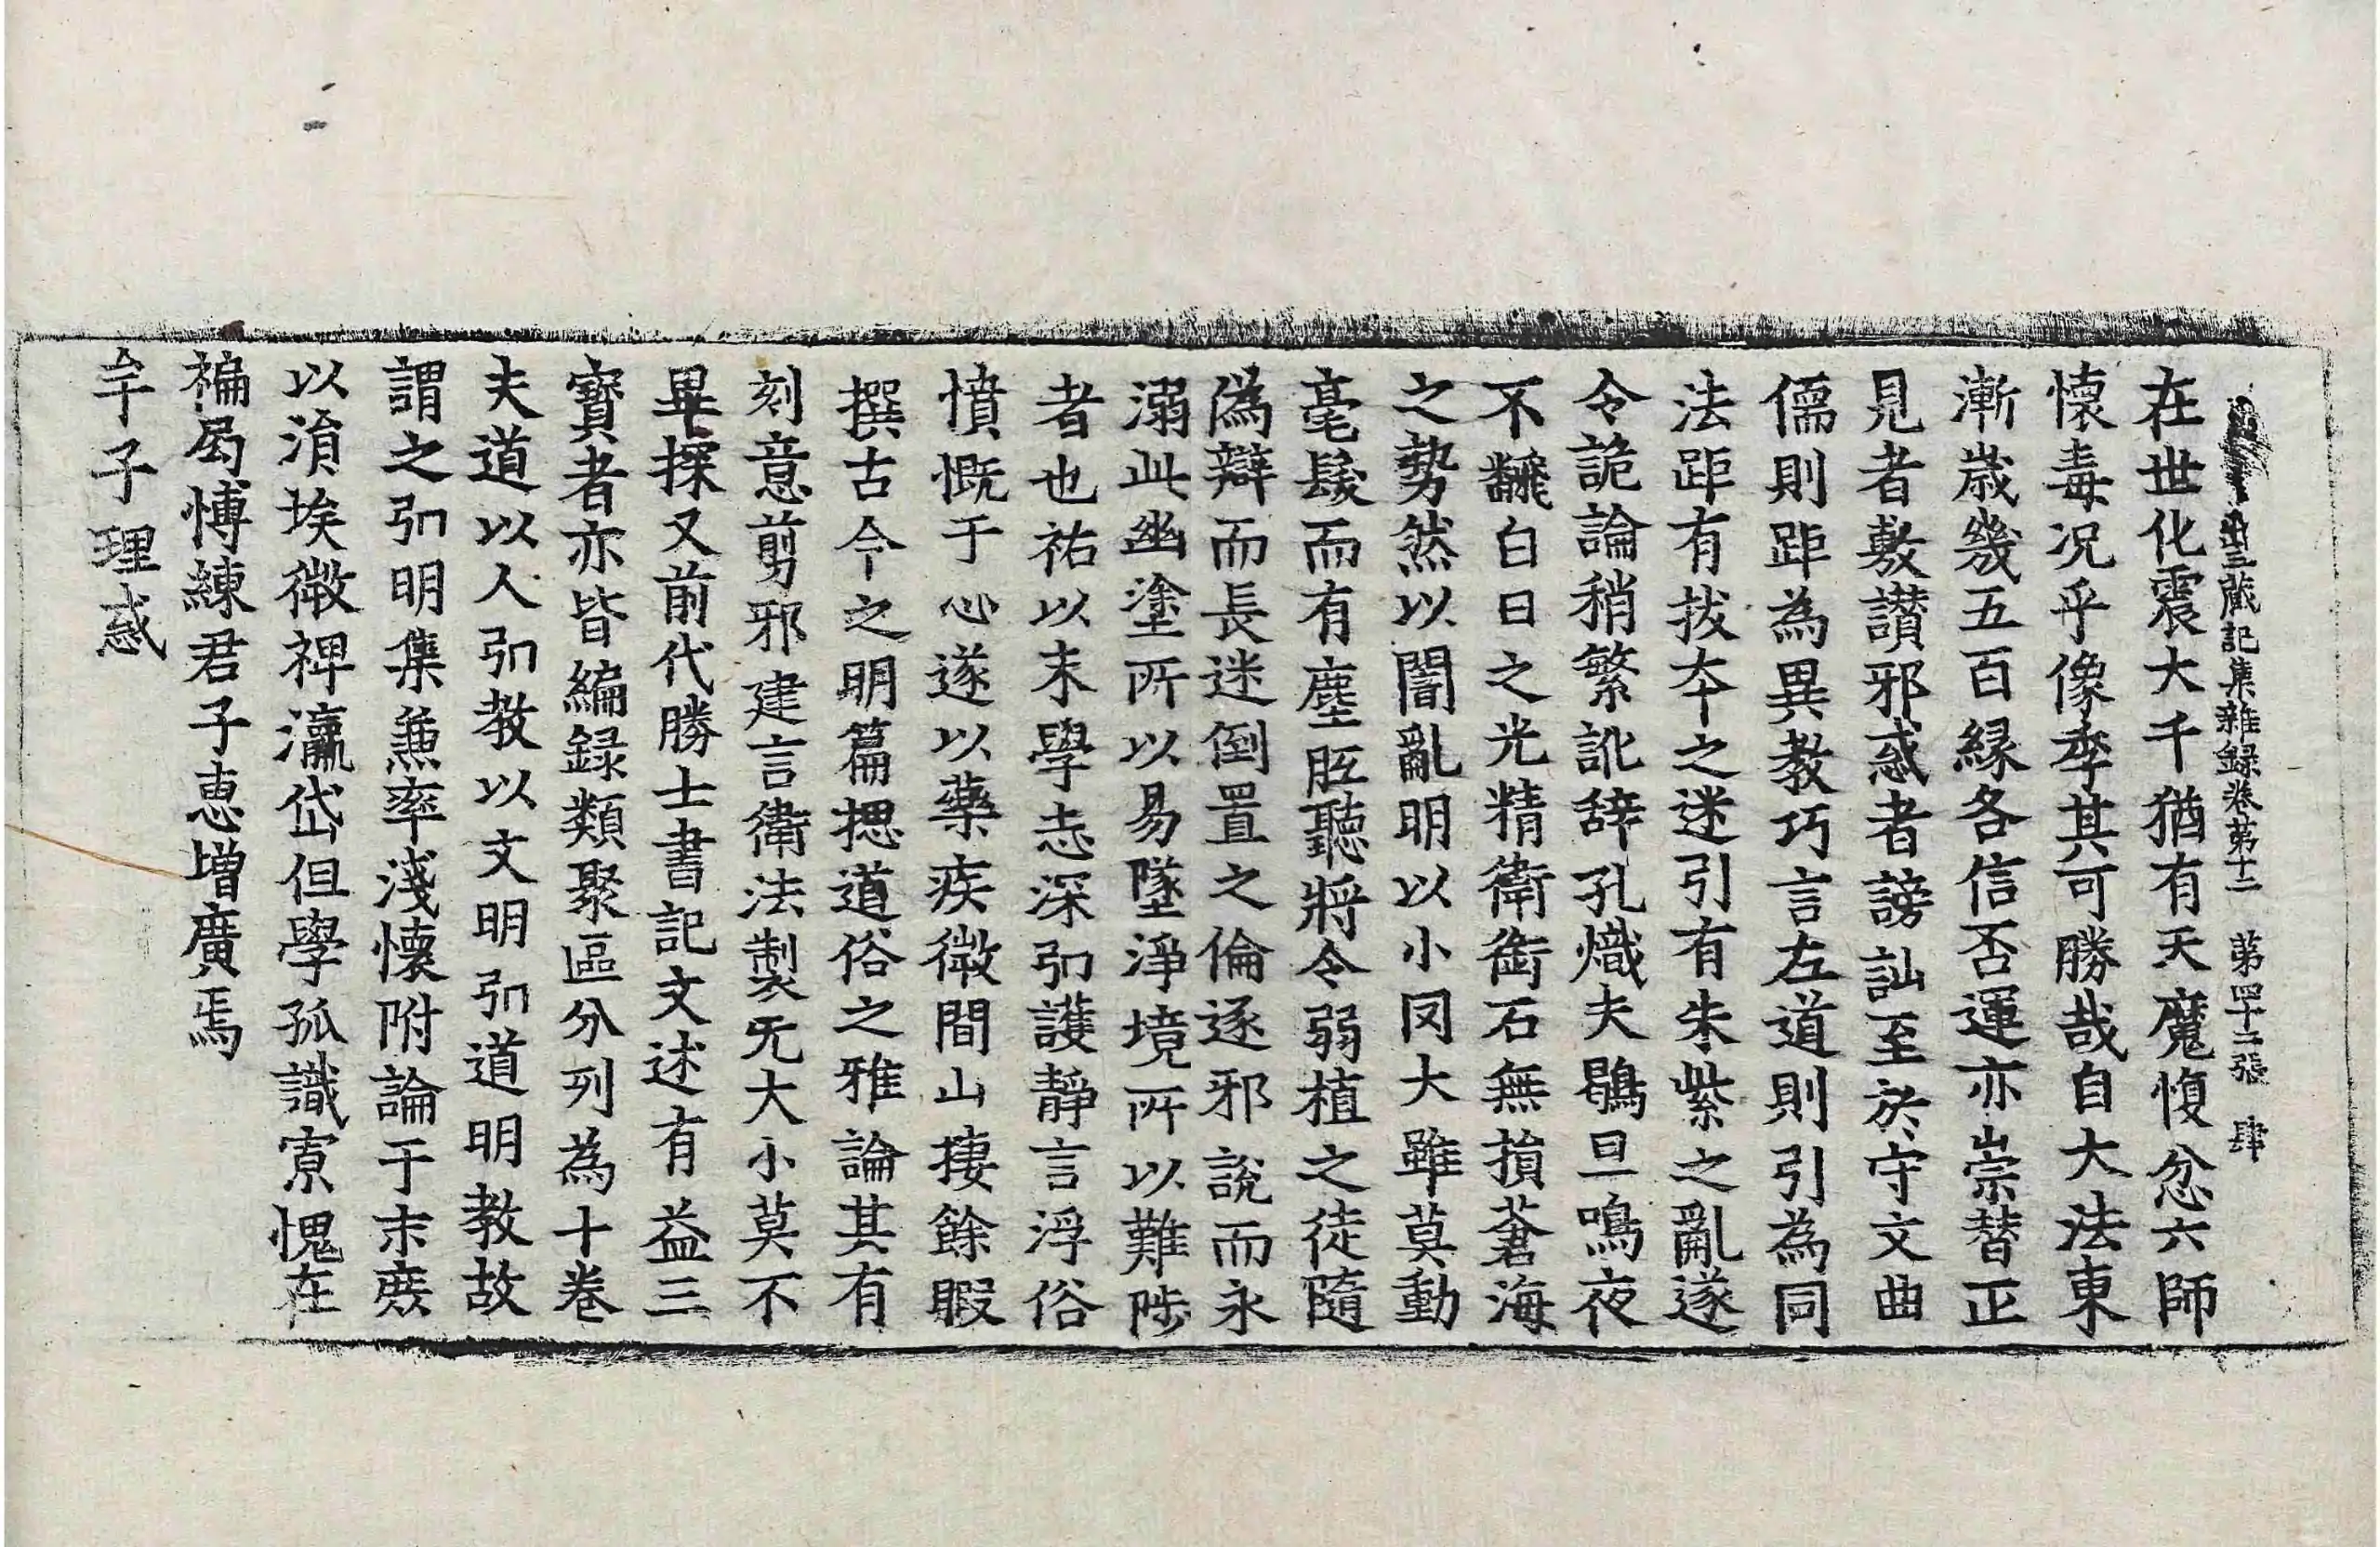 出三藏記集雜録卷第十二 第四十三張 肆
在世化震大千猶有天魔愎忿六師
懷毒况乎像季其可勝哉自大法東
漸歲幾五百緣各信否運亦崇替正
見者敷讃邪惑者謗訕至於守文曲
儒則距為異教巧言左道則引為同
法距有拔夲之迷引有朱紫之亂遂
令詭論稍繁訛辞孔熾夫鶡旦鳴夜
不翻白日之光精衛銜石無損蒼海
之勢然以闇亂明以小罔大雖莫動
毫髮而有塵眡聽將令弱植之徒隨
偽辯而長迷倒置之倫逐邪說而永
溺此幽塗所以易墜淨境所以難陟
者也祐以末學志深弘護靜言浮俗
憤慨于心遂以藥疾微間山棲餘暇
撰古今之明篇揔道俗之雅論其有
刻意剪邪建言衛法製无大小莫不
畢採又前代勝士書記文述有益三
寶者亦皆編録類聚區分列為十卷
夫道以人弘教以文明弘道明教故
謂之弘明集兼率淺懷附論于末庶
以涓埃微裨瀛岱但學孤識寡愧在
褊局博練君子惠增廣焉
牟子理惑